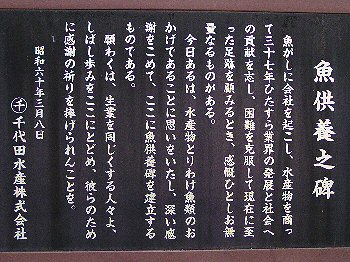 魚供養之碑
魚がしに会社を起こし、水産物を商っ
て三十七年ひたすら業界の発展と社会へ
の貢献を志し、困難を克服して現在に至
った足跡を顧みるとき、感慨ひとしお無
量なるものがある。
今日あるは、水産物とりわけ魚類のお
かげであることに思いをいたし、深い感
謝をこめて、ここに魚供養碑を建立する
ものである。
願わくは、生業を同じくする人々よ、
しばし歩みをここにとどめ、彼らのため
に感謝の祈りを捧げられんことを。
昭和六十年三月八日
㊉千代田水産株式会社